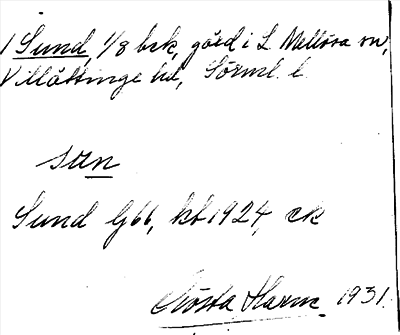 1 Sund, 1/8 bsk, gård i L Mellösa sn,
Villåttinge hd, Sörml. l.
sun
Sund Gbb, kb 1924, ek
Gösta Harm 1931.